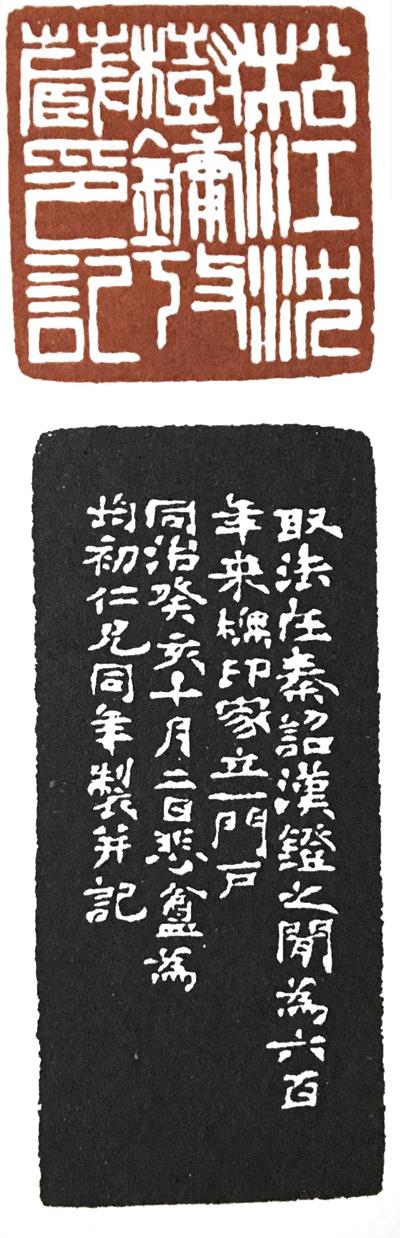 松江沈
樹鏞攷
藏印記
取法在秦詔漢鐙之間為六百
年來橅印家立一門戶
同治癸亥十月二日悲盦為
均初仁兄同年製并記